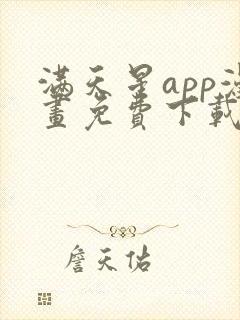 满天星app漫
畫免費下載
詹天佑